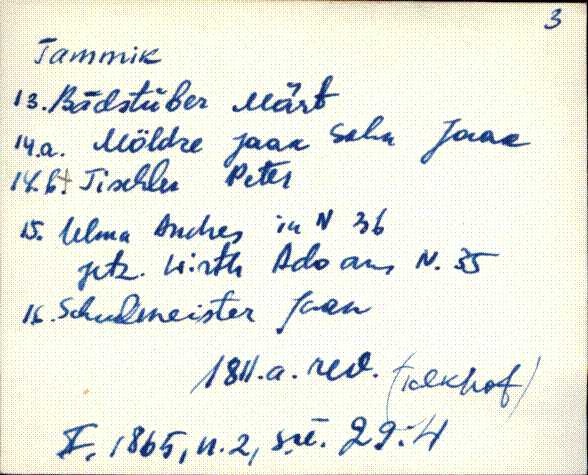 3
Tammik
13. Badstüber Märt
14.a. Möldre Jaak Sohn Jaak
14.b. Tischler Peter
15. Andres in N 36
jetz. Wirth Ado aus N. 35
16. Schulmeister Jaak
1811.a. rev. (Talkhof)
1865, n.2, 29:4